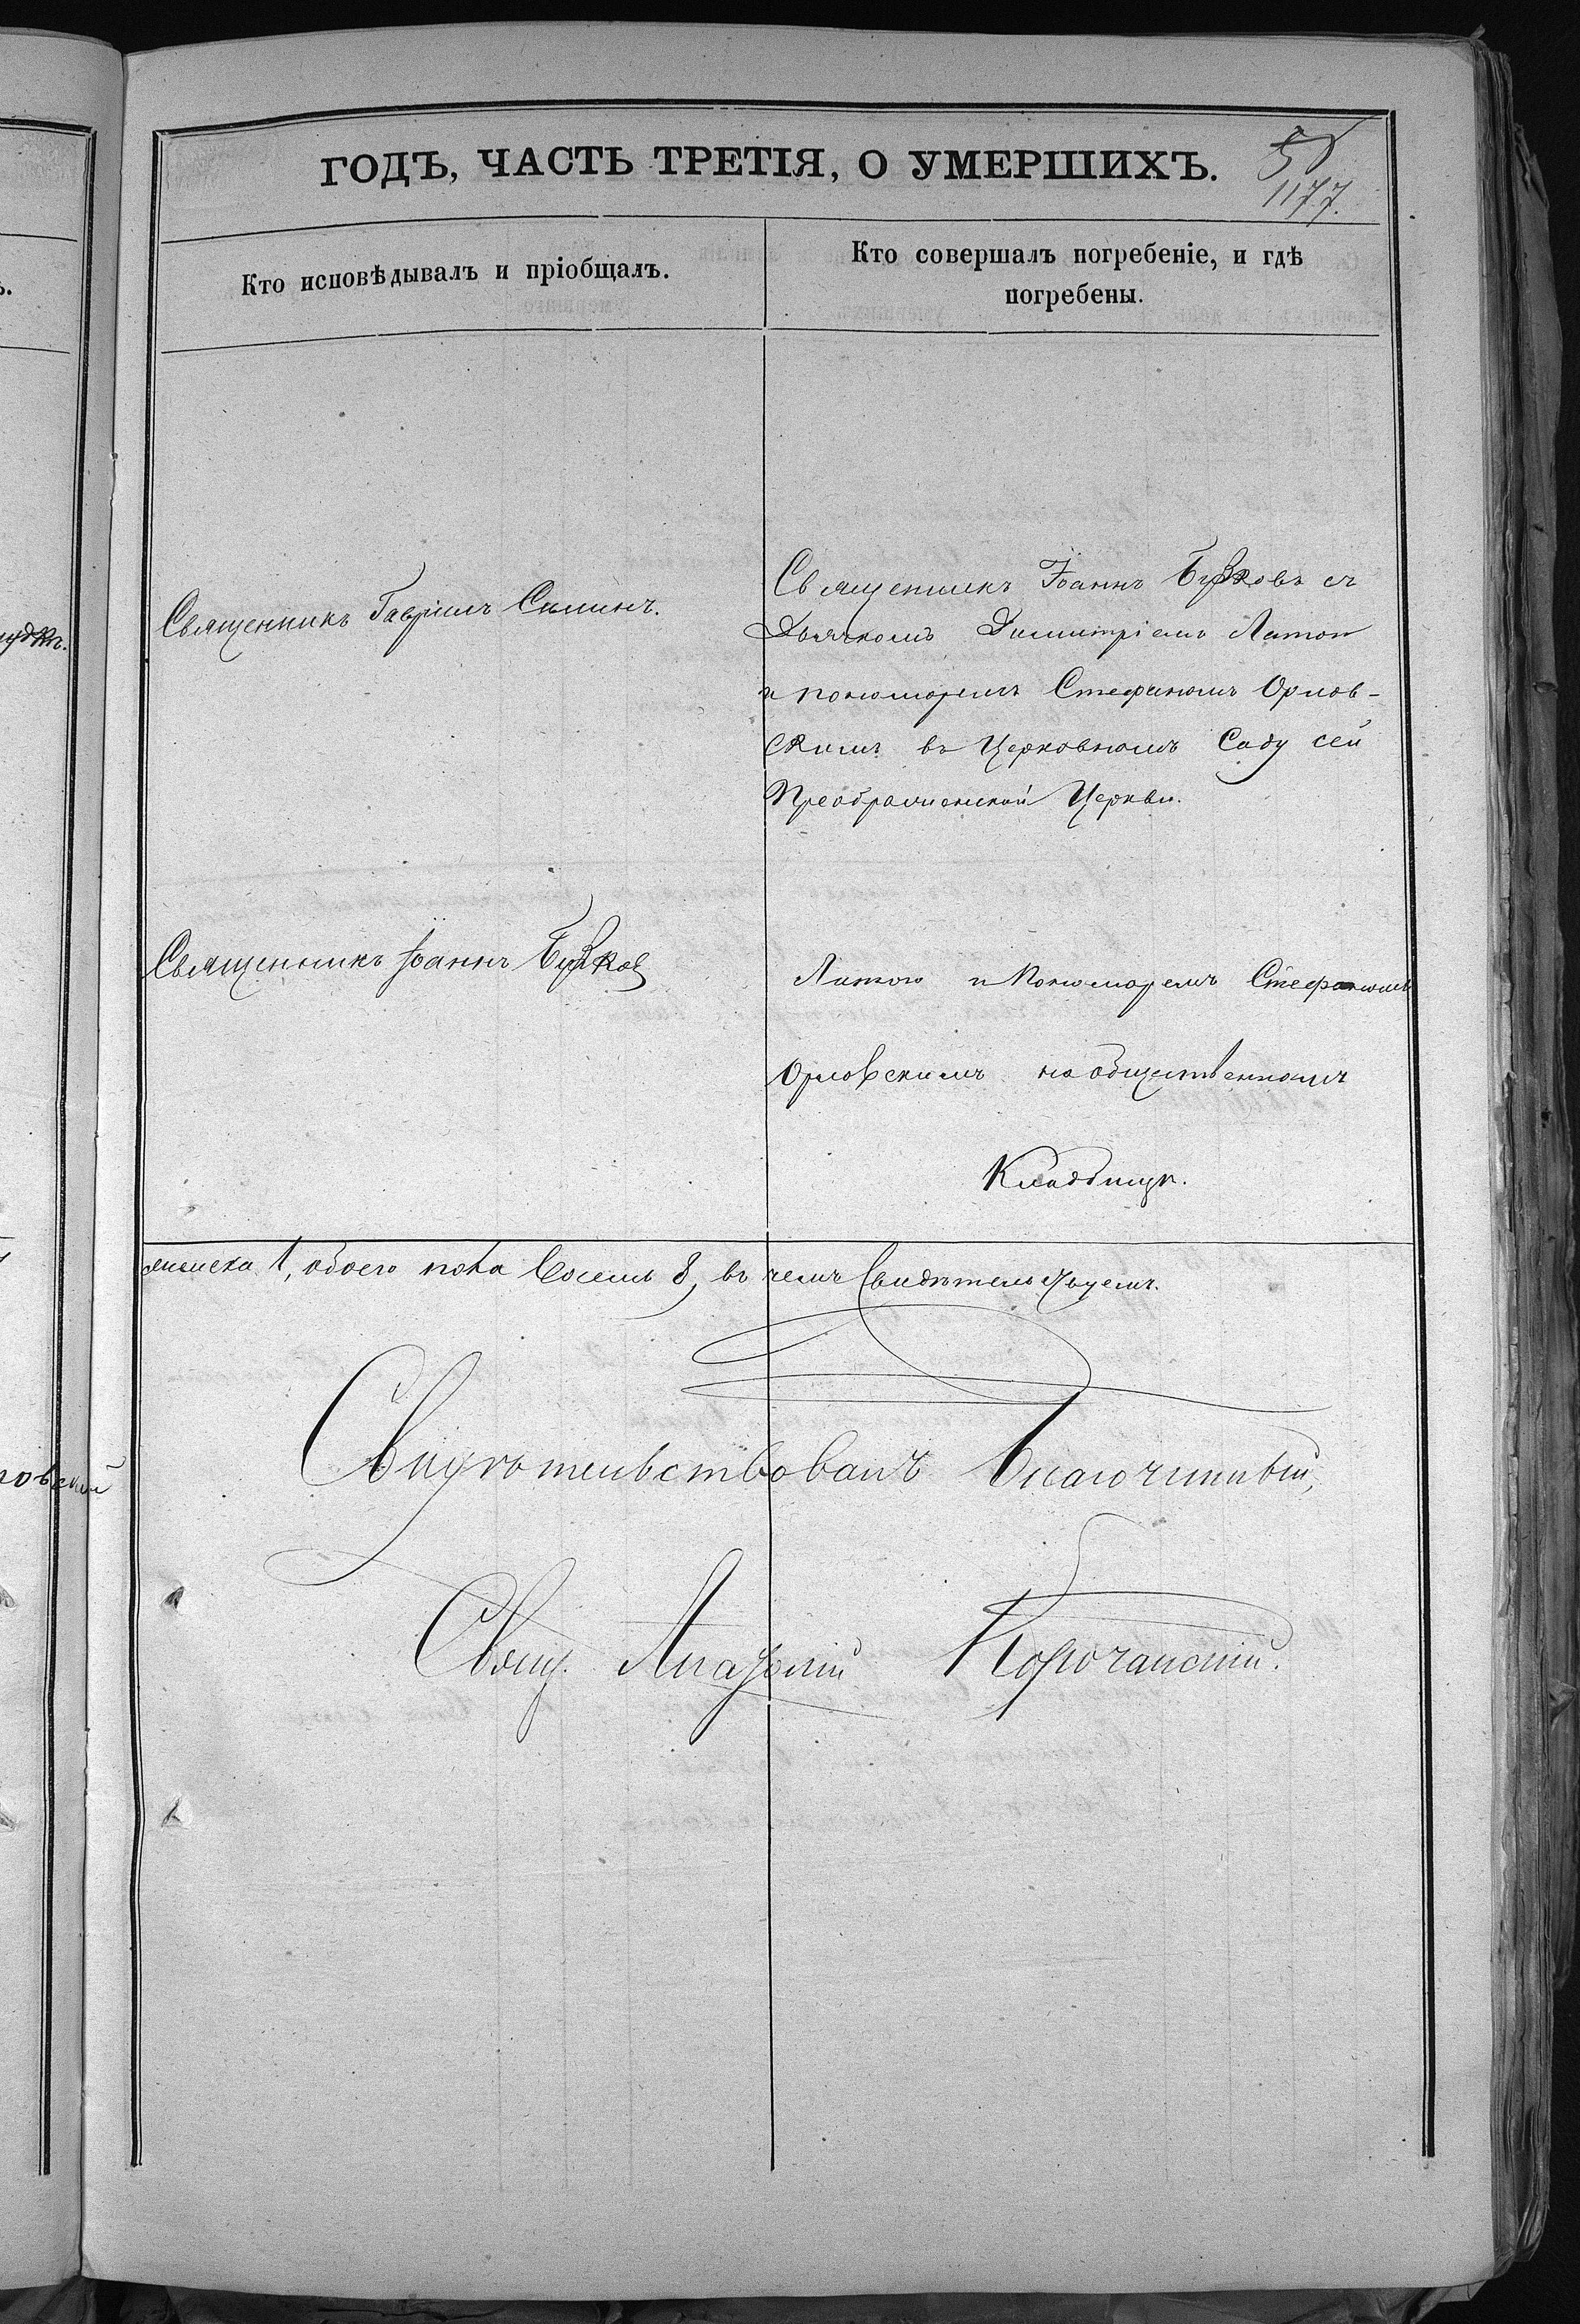 ГОДЪ, ЧАСТЬ ТРЕТІЯ, О УМЕРШИХЪ.
1177.
Кто исповѣдывалъ и пріобщалъ.
Кто совершалъ погребеніе, и гдѣ
погребены.
Священникъ Гавріилъ
Священникъ Іоаннъ съ
Дьячкомъ Димитріемъ
и пономаремъ Стефаномъ Орлов-
скимъ въ Церковномъ Саду сей
Преображенской Церкви.
Священникъ Іоаннъ
и Пономаремъ Стефаномъ
Орловскимъ на общественномъ
Кладбищѣ.
1, обоего пола восемь 8, въ чемъ Свидѣтельствуемъ.
Свидѣтельствовалъ Благочинный,
Свящ. Анатолій Корочанскій.